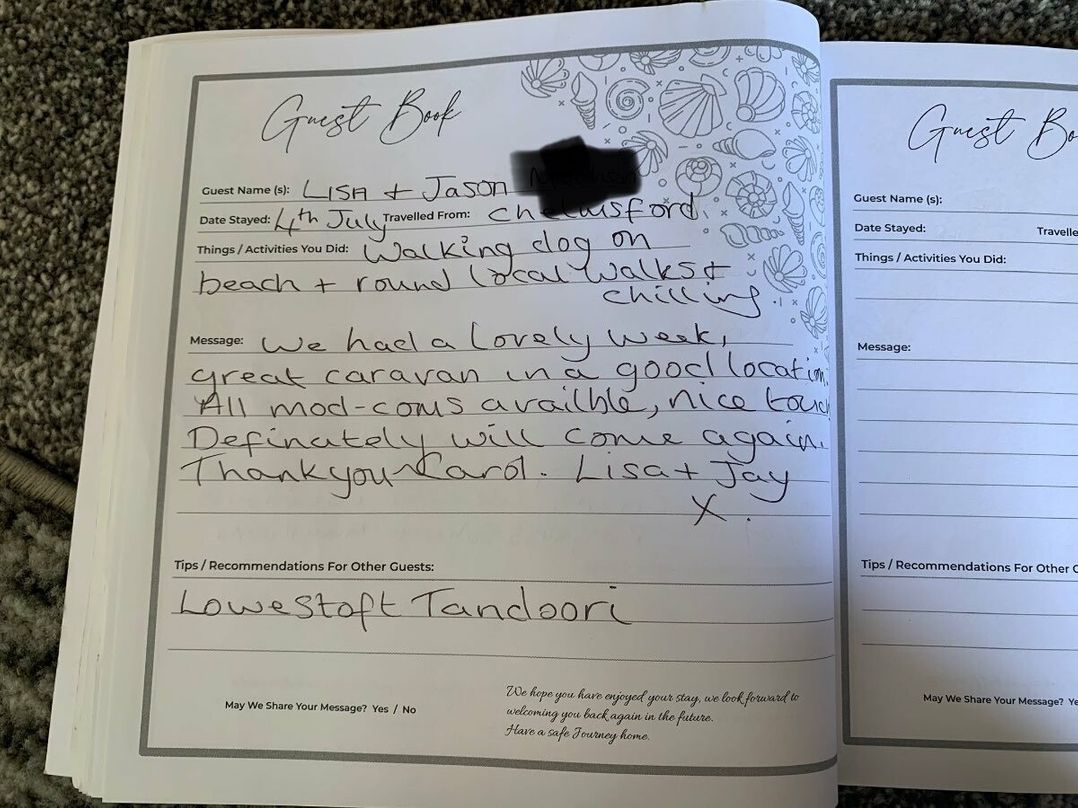 Guest Book
Guest Name (s): LISA + JASON
Date Stayed: 4th July Travelled From: Chelmsford.
Things / Activities You Did: Walking dog on
beach + round local walks +
chilling.
Message: We had a lovely week,
great caravan in a good location.
All mod-cons availble, nice touch
Definately will come again.
Thankyou Carol. Lisa + Jay
X.
Tips / Recommendations For Other Guests:
Lowestoft Tandoori
May We Share Your Message? Yes / No
We hope you have enjoyed your stay, we look forward to
welcoming you back again in the future.
Have a safe Journey home.
Guest Bo
Guest Name (s):
Date Stayed: Travelle
Things / Activities You Did:
Message:
Tips / Recommendations For Other G
May We Share Your Message? Ye